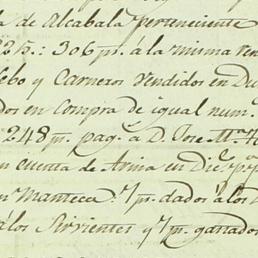 de Alcabala perteneciente
225.: 306 ps. á la misma ven
Cebo y Carneros vendidos en Di
dos en compra de igual num.
248 ps. pag. á D. Jose Ma.
n cuenta de Arina en Dic.
n Manteca. 7 ps. dados á los D
á los Sirvientes y 7 ps. ganados